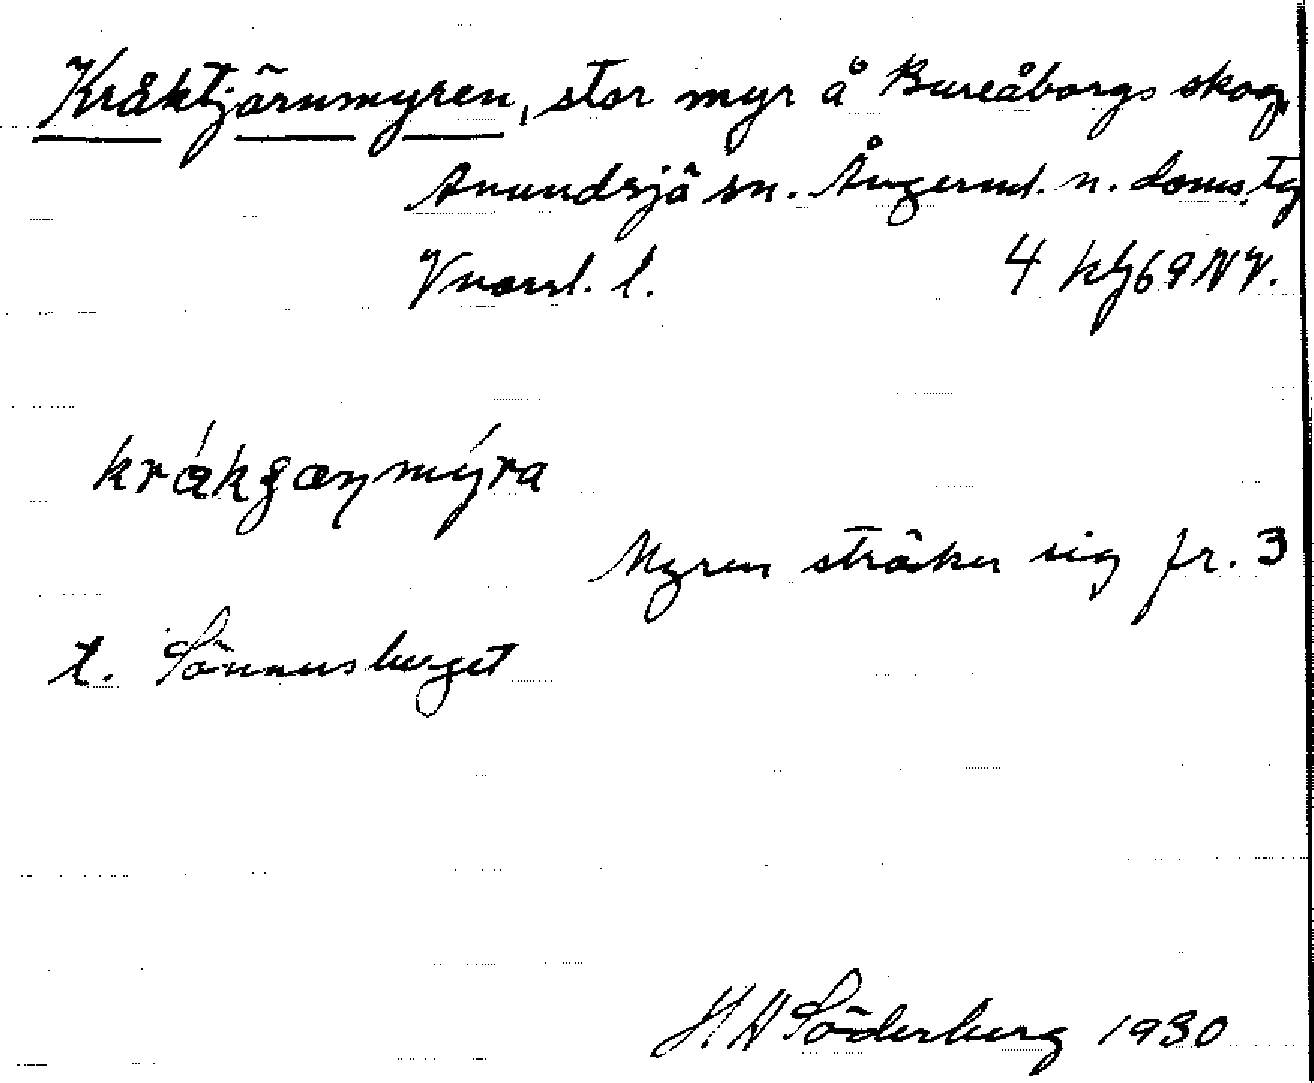 Kråktjärnmyren, stor myr å Bureåborgs skog,
Anundsjö sn. Ångerml. n. doms. tg
Vnorrl. l. 4 kbg 69 NV.
kråkʒæɳmýra
Myren sträcker sig fr. 3
t. Sönnusberget
H A Söderberg 1930